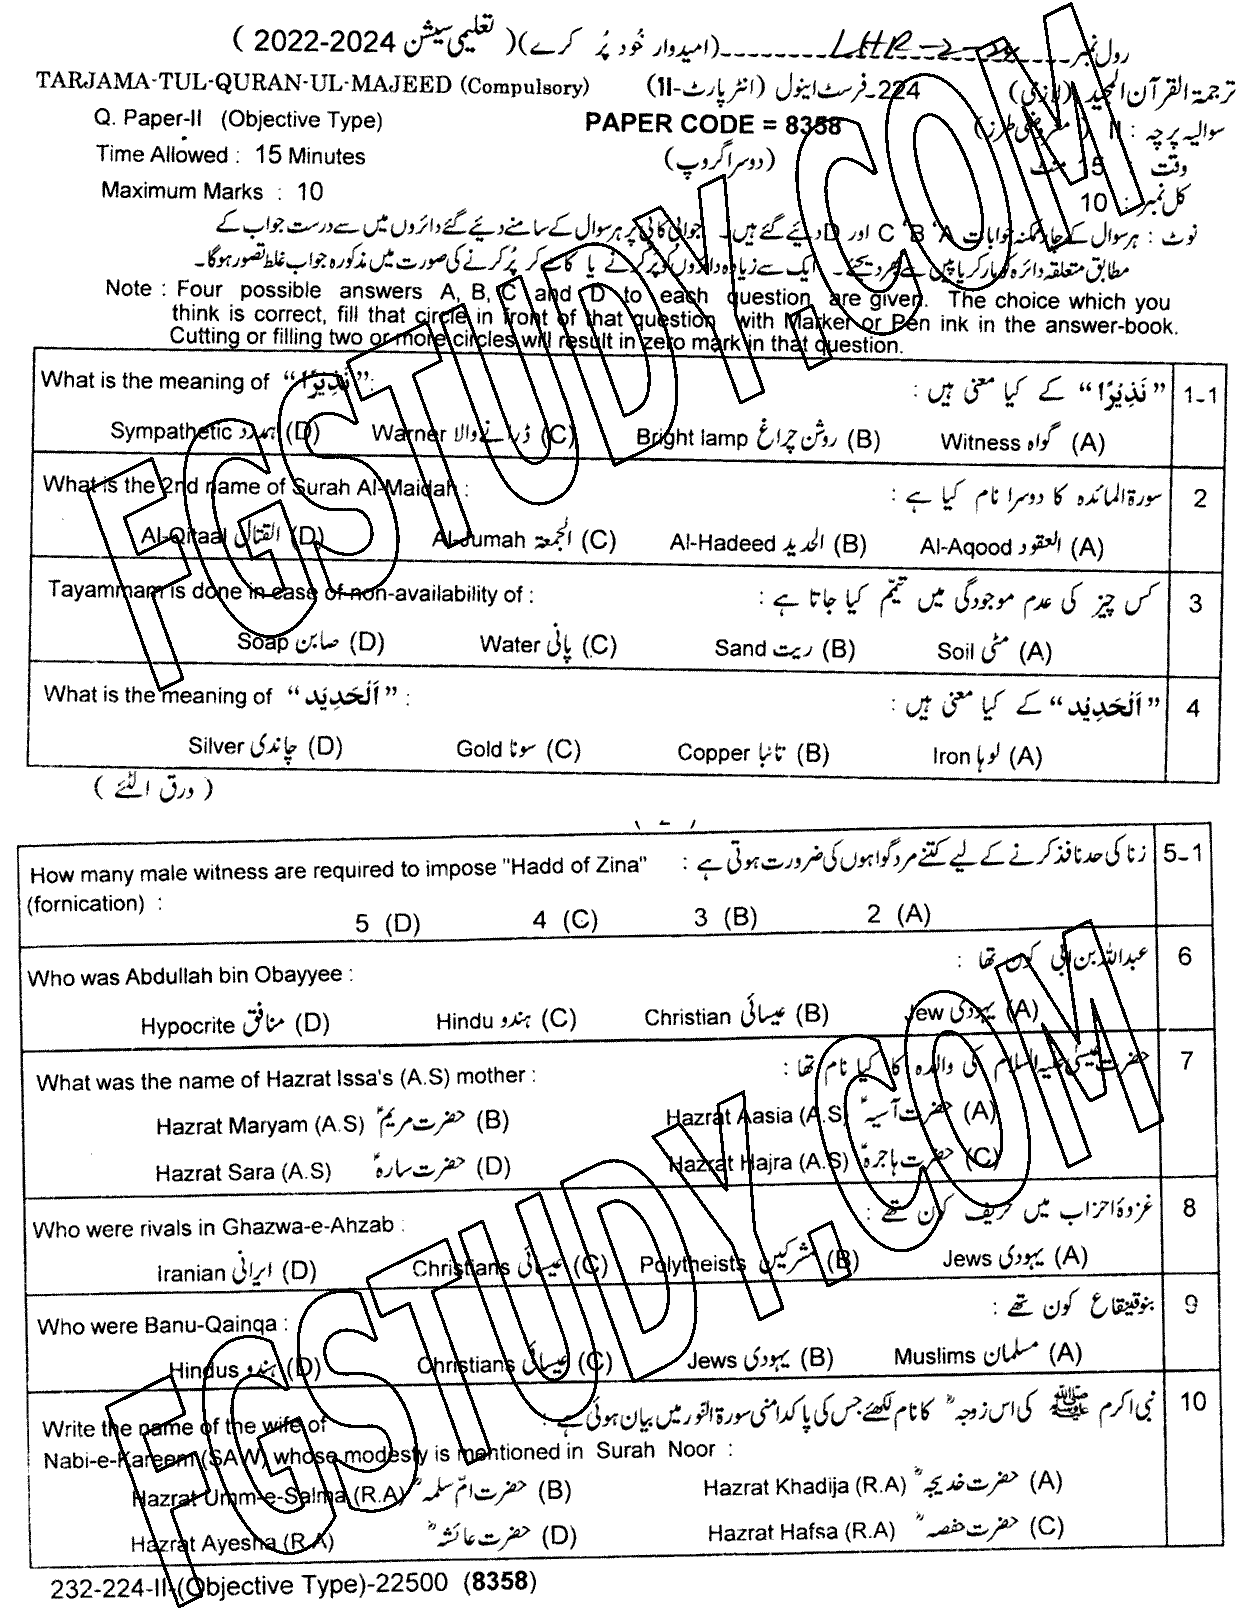 رول نمبر LHR-2- (امیدوار خود پُر کرے) (تعلیمی سیشن 2022-2024 )
TARJAMA-TUL-QURAN-UL-MAJEED (Compulsory) 224-فرسٹ اینول (انٹر پارٹ-II) ترجمۃ القرآن المجید (لازمی)
Q. Paper-II (Objective Type) PAPER CODE = 8358 سوالیہ پرچہ : II (معروضی طرز)
Time Allowed : 15 Minutes (دوسرا گروپ) وقت : 15 منٹ
Maximum Marks : 10 کل نمبر : 10
نوٹ : ہر سوال کے چار ممکنہ جوابات A ' B ' C اور D دیئے گئے ہیں۔ جوابی کاپی پر ہر سوال کے سامنے دیئے گئے دائروں میں سے درست جواب کے
مطابق متعلقہ دائرہ کو مارکر یا پین سے بھر دیجئے۔ ایک سے زیادہ دائروں کو پُر کرنے یا کاٹ کر پُر کرنے کی صورت میں مذکورہ جواب غلط تصور ہو گا۔
Note : Four possible answers A, B, C and D to each question are given. The choice which you
think is correct, fill that circle in front of that question with Marker or Pen ink in the answer-book.
Cutting or filling two or more circles will result in zero mark in that question.
What is the meaning of “نَذِيْرًا” : “نَذِيْرًا” کے کیا معنی ہیں : 1-1
Sympathetic ہمدرد (D) Warner ڈرانے والا (C) Bright lamp روشن چراغ (B) Witness گواہ (A)
What is the 2nd name of Surah Al-Maidah : سورۃ المائدہ کا دوسرا نام کیا ہے : 2
Al-Qitaal القتال (D) Al-Jumah الجمعۃ (C) Al-Hadeed الحدید (B) Al-Aqood العقود (A)
Tayammam is done in case of non-availability of : کس چیز کی عدم موجودگی میں تیمّم کیا جاتا ہے : 3
Soap صابن (D) Water پانی (C) Sand ریت (B) Soil مٹی (A)
What is the meaning of “اَلْحَدِيْد” : “اَلْحَدِيْد” کے کیا معنی ہیں : 4
Silver چاندی (D) Gold سونا (C) Copper تانبا (B) Iron لوہا (A)
( ورق الٹئے )
How many male witness are required to impose "Hadd of Zina" زنا کی حد نافذ کرنے کے لیے کتنے مرد گواہوں کی ضرورت ہوتی ہے : 5-1
(fornication) :
5 (D) 4 (C) 3 (B) 2 (A)
Who was Abdullah bin Obayyee : عبداللہ بن ابی کون تھا : 6
Hypocrite منافق (D) Hindu ہندو (C) Christian عیسائی (B) Jew یہودی (A)
What was the name of Hazrat Issa's (A.S) mother : حضرت عیسیٰ علیہ السلام کی والدہ کا کیا نام تھا : 7
Hazrat Maryam (A.S) حضرت مریمؑ (B) Hazrat Aasia (A.S) حضرت آسیہؑ (A)
Hazrat Sara (A.S) حضرت سارہؑ (D) Hazrat Hajra (A.S) حضرت ہاجرہؑ (C)
Who were rivals in Ghazwa-e-Ahzab : غزوۂ احزاب میں حریف کون تھے : 8
Iranian ایرانی (D) Christians عیسائی (C) Polytheists مشرکین (B) Jews یہودی (A)
Who were Banu-Qainqa : بنو قینقاع کون تھے : 9
Hindus ہندو (D) Christians عیسائی (C) Jews یہودی (B) Muslims مسلمان (A)
Write the name of the wife of نبی اکرم ﷺ کی اس زوجہؓ کا نام لکھئے جس کی پاکدامنی سورۃ النور میں بیان ہوئی ہے : 10
Nabi-e-Kareem (SAW) whose modesty is mentioned in Surah Noor :
Hazrat Umm-e-Salma (R.A) حضرت امّ سلمہؓ (B) Hazrat Khadija (R.A) حضرت خدیجہؓ (A)
Hazrat Ayesha (R.A) حضرت عائشہؓ (D) Hazrat Hafsa (R.A) حضرت حفصہؓ (C)
232-224-II-(Objective Type)-22500 (8358)
FGSTUDY.COM
FGSTUDY.COM